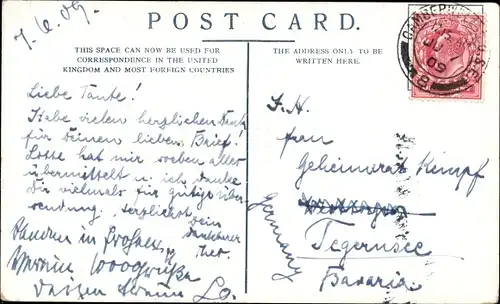 7.6.09.
POST CARD.
THIS SPACE CAN NOW BE USED FOR
CORRESPONDENCE IN THE UNITED
KINGDOM AND MOST FOREIGN COUNTRIES
THE ADDRESS ONLY TO BE
WRITTEN HERE.
CAMBERWELL
JU
09
Liebe Tante!
Habe vielen herzlichen Dank
für Deinen lieben Brief!
Lotte hat mir soeben alles
übermittelt u. ich danke
Dir vielmals für gütige Über-
sendung. Herzlichst Dein
dankbarer
Tausen
1000 Grüße
Lo.
I. H.
Frau
Geheimerat Kempf
Tegernsee
Bavaria
Germany